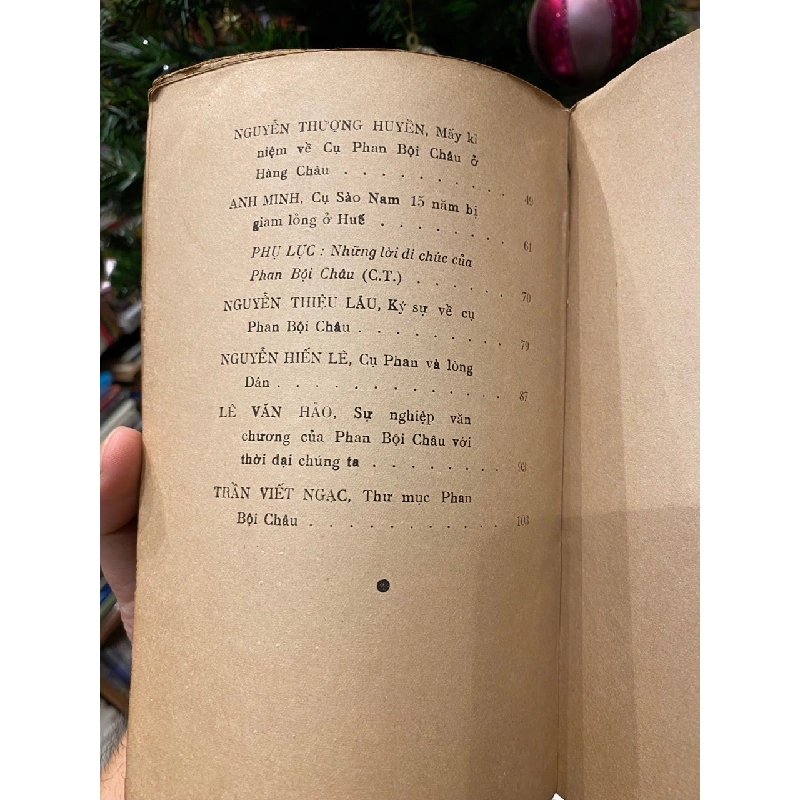 NGUYỄN THƯỢNG HUYỀN, Mấy kỉ
niệm về Cụ Phan Bội Châu ở
Hàng Châu . . . . . . . . . . 49
ANH MINH, Cụ Sào Nam 15 năm bị
giam lỏng ở Huế . . . . . . . . 61
PHỤ LỤC : Những lời di chúc của
Phan Bội Châu (C.T.) . . . . . . . 70
NGUYỄN THIỆU LÂU, Ký sự về cụ
Phan Bội Châu . . . . . . . . . 79
NGUYỄN HIẾN LÊ, Cụ Phan và lòng
Dân . . . . . . . . . . . . . 87
LÊ VĂN HẢO, Sự nghiệp văn
chương của Phan Bội Châu với
thời đại chúng ta . . . . . . . . 93
TRẦN VIẾT NGẠC, Thư mục Phan
Bội Châu . . . . . . . . . . . 103